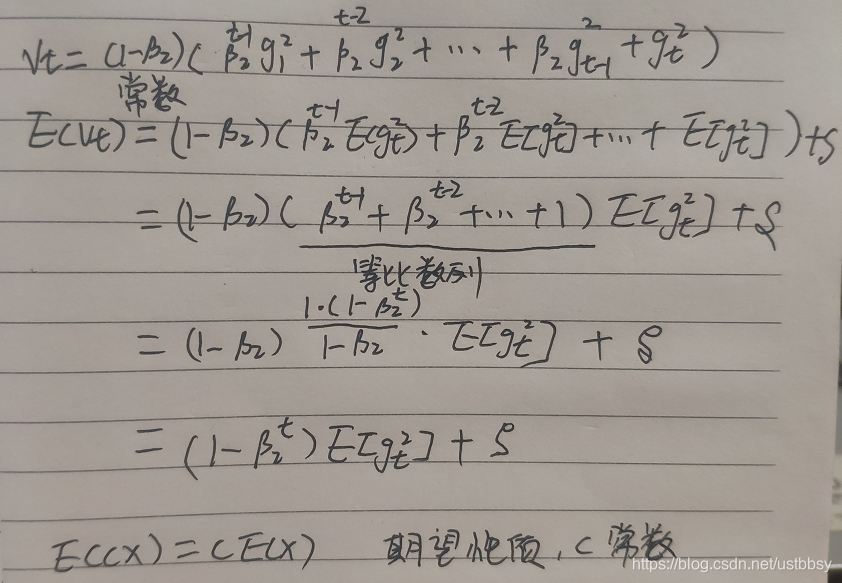 Vt = (1-β₂)( β₂^{t-1} g₁² + β₂^{t-2} g₂² + ⋯ + β₂ g_{t-1}² + g_t² )
常数
E(Vt) = (1-β₂)( β₂^{t-1} E(g_t²) + β₂^{t-2} E[g_t²] + ⋯ + E[g_t²] ) + ζ
= (1-β₂)( β₂^{t-1} + β₂^{t-2} + ⋯ + 1 ) E[g_t²] + ζ
等比数列
= (1-β₂) \frac{1·(1-β₂^t)}{1-β₂} · E[g_t²] + ζ
= (1-β₂^t) E[g_t²] + ζ
E(CX) = CE(X) 期望性质, C 常数
https://blog.csdn.net/ustbbsy